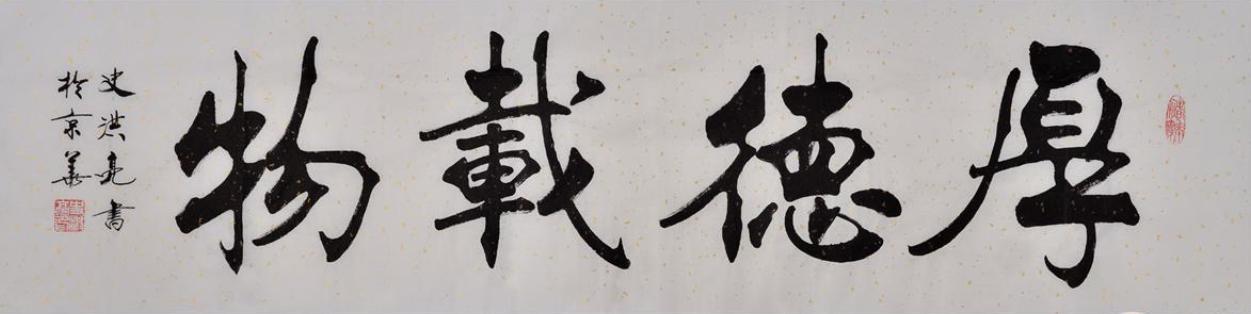 厚德載物
史洪亮書
於京華